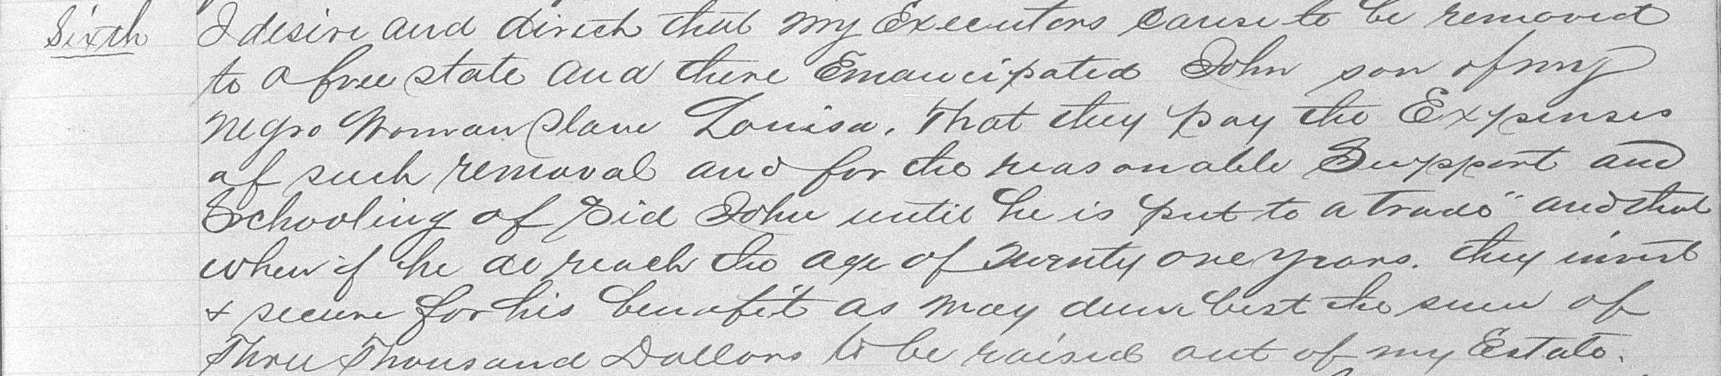 Sixth I desire and direct that my Executors cause to be removed
to a free state and there Emancipated John son of my
negro Woman Slave Louisa. That they pay the Expenses
of such removal and for the reasonable Support and
Schooling of Sid John until he is put to a trade" and that
when if he do reach the age of Twenty one years. they invest
& secure for his benefit as may deem best the sum of
Three Thousand Dollars to be raised out of my Estate.